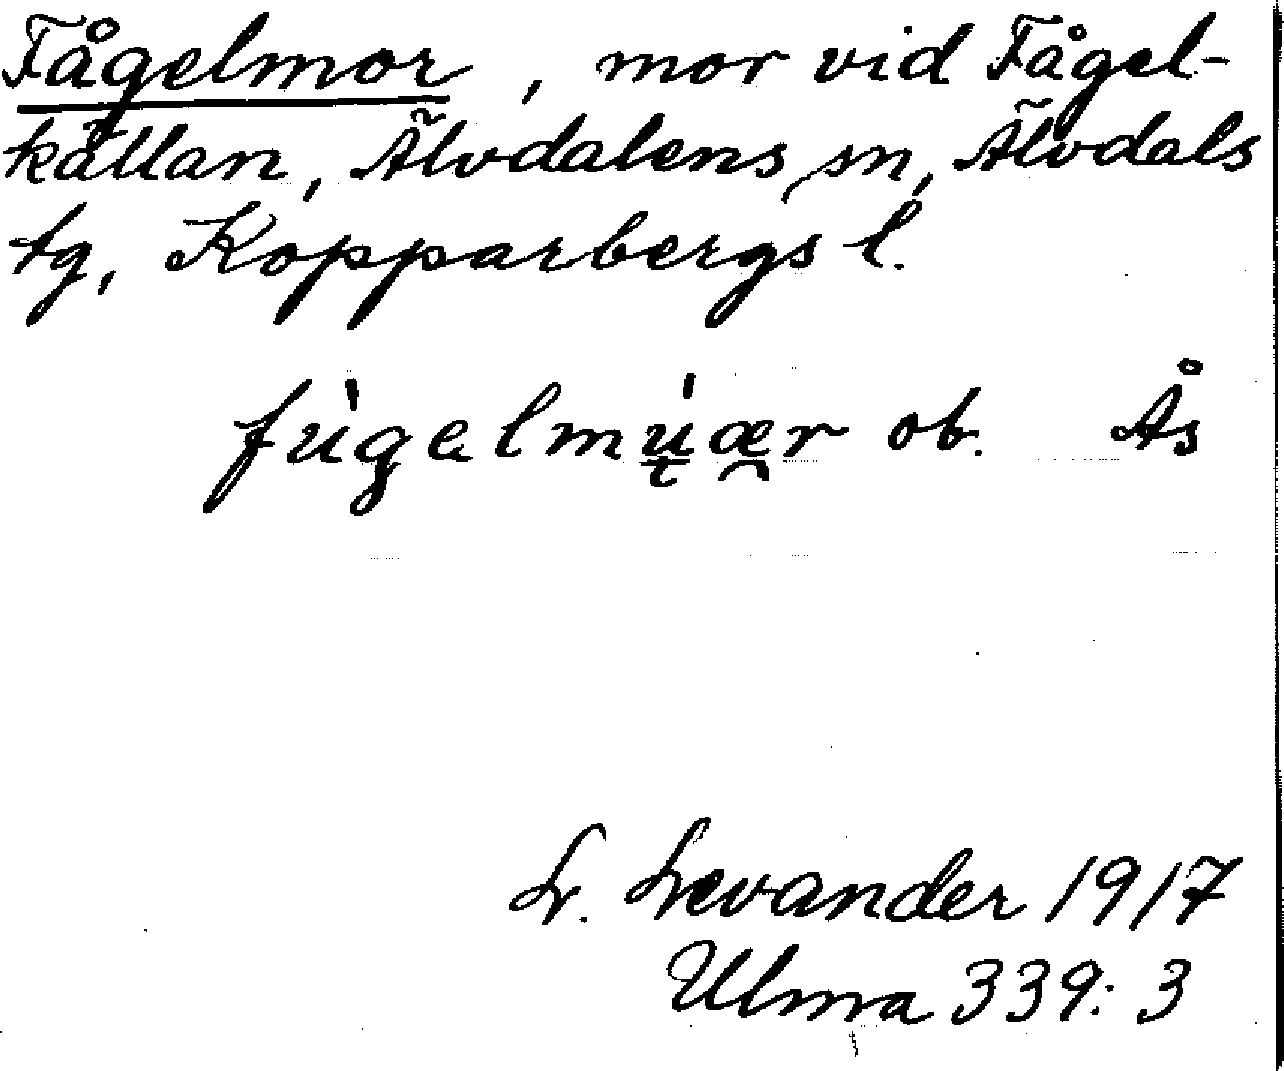 Fågelmor, mor vid Fågel-
källan, Älvdalens sn, Älvdals
tg, Kopparbergs l.
fùgelmúær ob. Ås
L. Levander 1917
Ulma 339:3